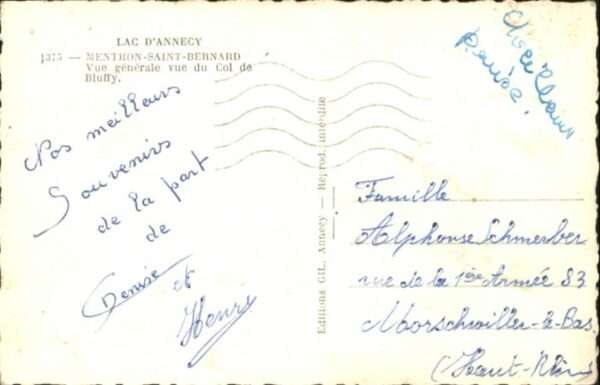 LAC D'ANNECY
1375 — MENTHON-SAINT-BERNARD
Vue générale vue du Col de
Bluffy.
Nos meilleurs
Souvenirs
de la part
de
Denise et
Henri
Editions GIL, Annecy — Reprod. interdite
Famille
Alphonse Schmerber
rue de la 1ère Armée 83
Morschwiller-le-Bas
(Haut-Rhin